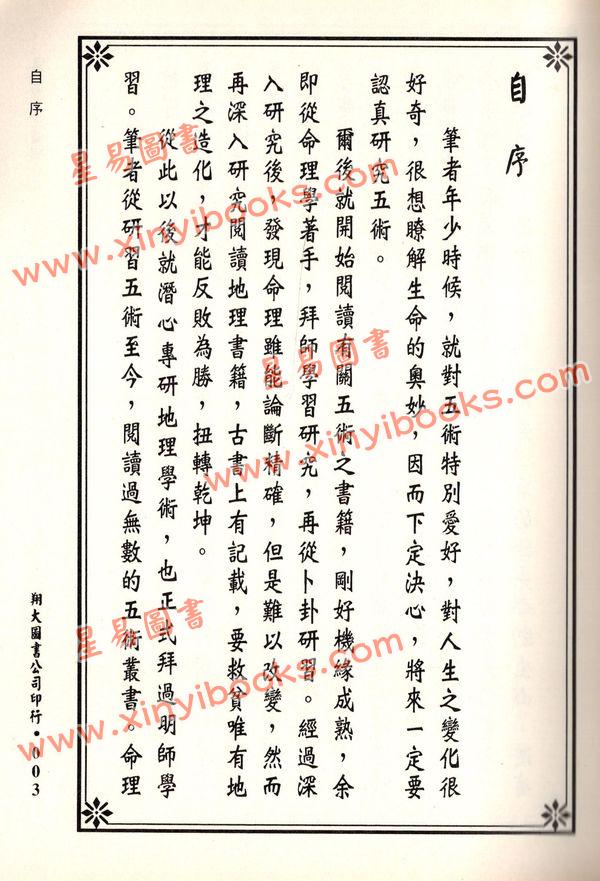 自序
筆者年少時候，就對五術特別愛好，對人生之變化很
好奇，很想瞭解生命的奧妙，因而下定決心，將來一定要
認真研究五術。
爾後就開始閱讀有關五術之書籍，剛好機緣成熟，余
即從命理學著手，拜師學習研究，再從卜卦研習。經過深
入研究後，發現命理雖能論斷精確，但是難以改變，然而
再深入研究閱讀地理書籍，古書上有記載，要救貧唯有地
理之造化，才能反敗為勝，扭轉乾坤。
從此以後就潛心專研地理學術，也正式拜過明師學
習。筆者從研習五術至今，閱讀過無數的五術叢書。命理
自序
翔大圖書公司印行•003
星易圖書
www.xinyibooks.com
星易圖書
www.xinyibooks.com
星易圖書
www.xinyibooks.com